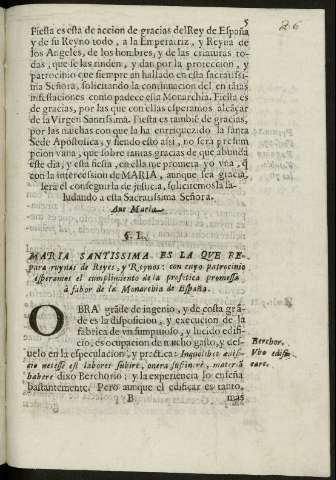 5
26
Fiesta es esta de accion de gracias del Rey de España
y de su Reyno todo, a la Emperatriz, y Reyna de
los Angeles, de los hombres, y de las criaturas to-
das, que se las rinden, y dan por la proteccion, y
patrocinio que siempre an hallado en esta sacratissi-
ma Señora, solicitando la continuacion del en tãtas
infestaciones como padece esta Monarchia. Fiesta es
de gracias, por las que con ellas esperamos alcãçar
de la Virgen Santissima. Fiesta es tambiẽ de gracias,
por las muchas con que la ha enriquezido la santa
Sede Apostolica, y siendo esto assi, no serà presum
pcion vana, que sobre tantas gracias de que abunda
este dia, y esta fiesta, en ella me prometa yo vna, q̃
con la intercession de MARIA, aunque sea gracia,
serà el conseguirla de justicia, solicitemosla sa-
ludando a esta Sacratissima Señora.
Aue Maria.
§. I.
MARIA SANTISSIMA ES LA QUE RE-
para ruynas de Reyes, y Reynos: con cuyo patrocinio
esperamos el cumplimiento de la profetica promessa
à fabor de la Monarchia de España.
OBRA grãde de ingenio, y de costa grã-
de es la disposicion, y execucion de la
fabrica de vn sumptuoso, y lucido edifi-
cio, es ocupacion de mucho gasto, y des-
uelo en la especulacion, y practica: Inquolibet edifi-
cio necesse est labores subire, onera sustinere, materiã
habere dixo Berchorio; y la experiencia lo enseña
bastantemente. Pero aunque el edificar es tanto,
Berchor.
Vbo edifi-
care.
B
mas